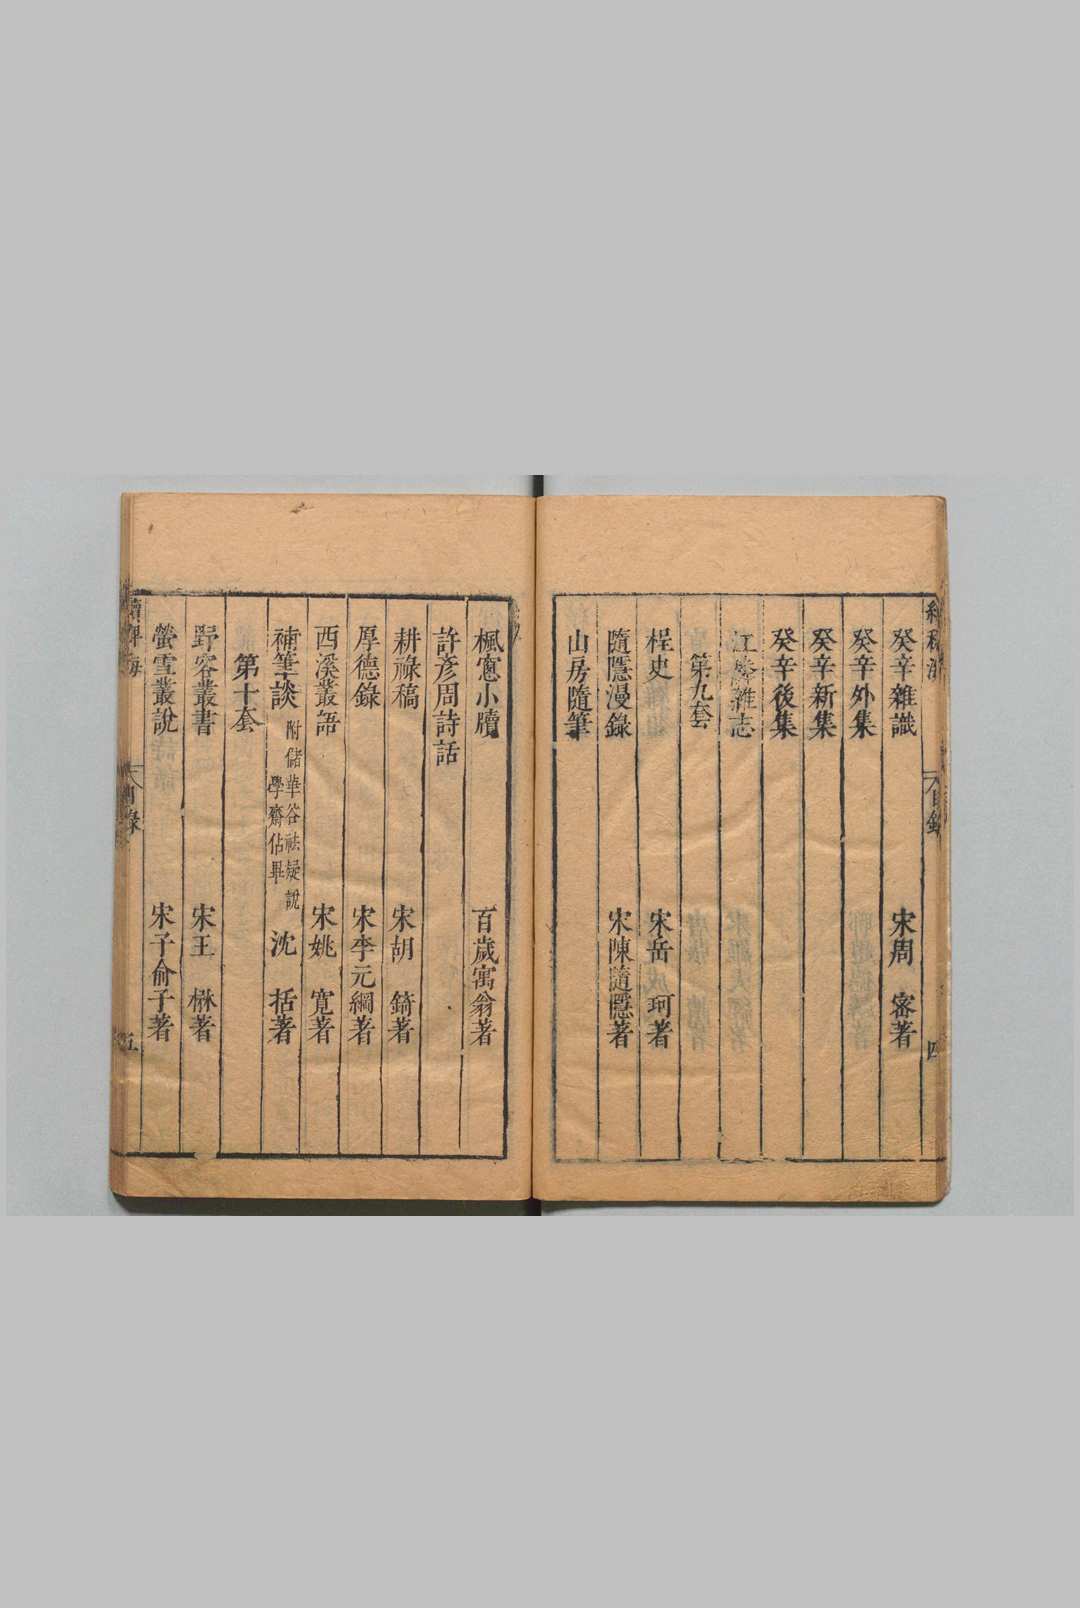 癸辛雜識 宋周 密著
癸辛外集
癸辛新集
癸辛後集
江鄰雜志
第九套
桯史 宋岳 珂著
隨隱漫錄 宋陳隨隱著
山房隨筆
目錄 四
楓窻小牘 百歲寓翁著
許彥周詩話
耕祿稿 宋胡 錡著
厚德錄 宋李元綱著
西溪叢語 宋姚 寬著
補筆談 附儲華谷祛疑說 學齋佔畢 沈 括著
第十套
野客叢書 宋王 楙著
螢雪叢說 宋子俞子著
續稗海 目錄 五